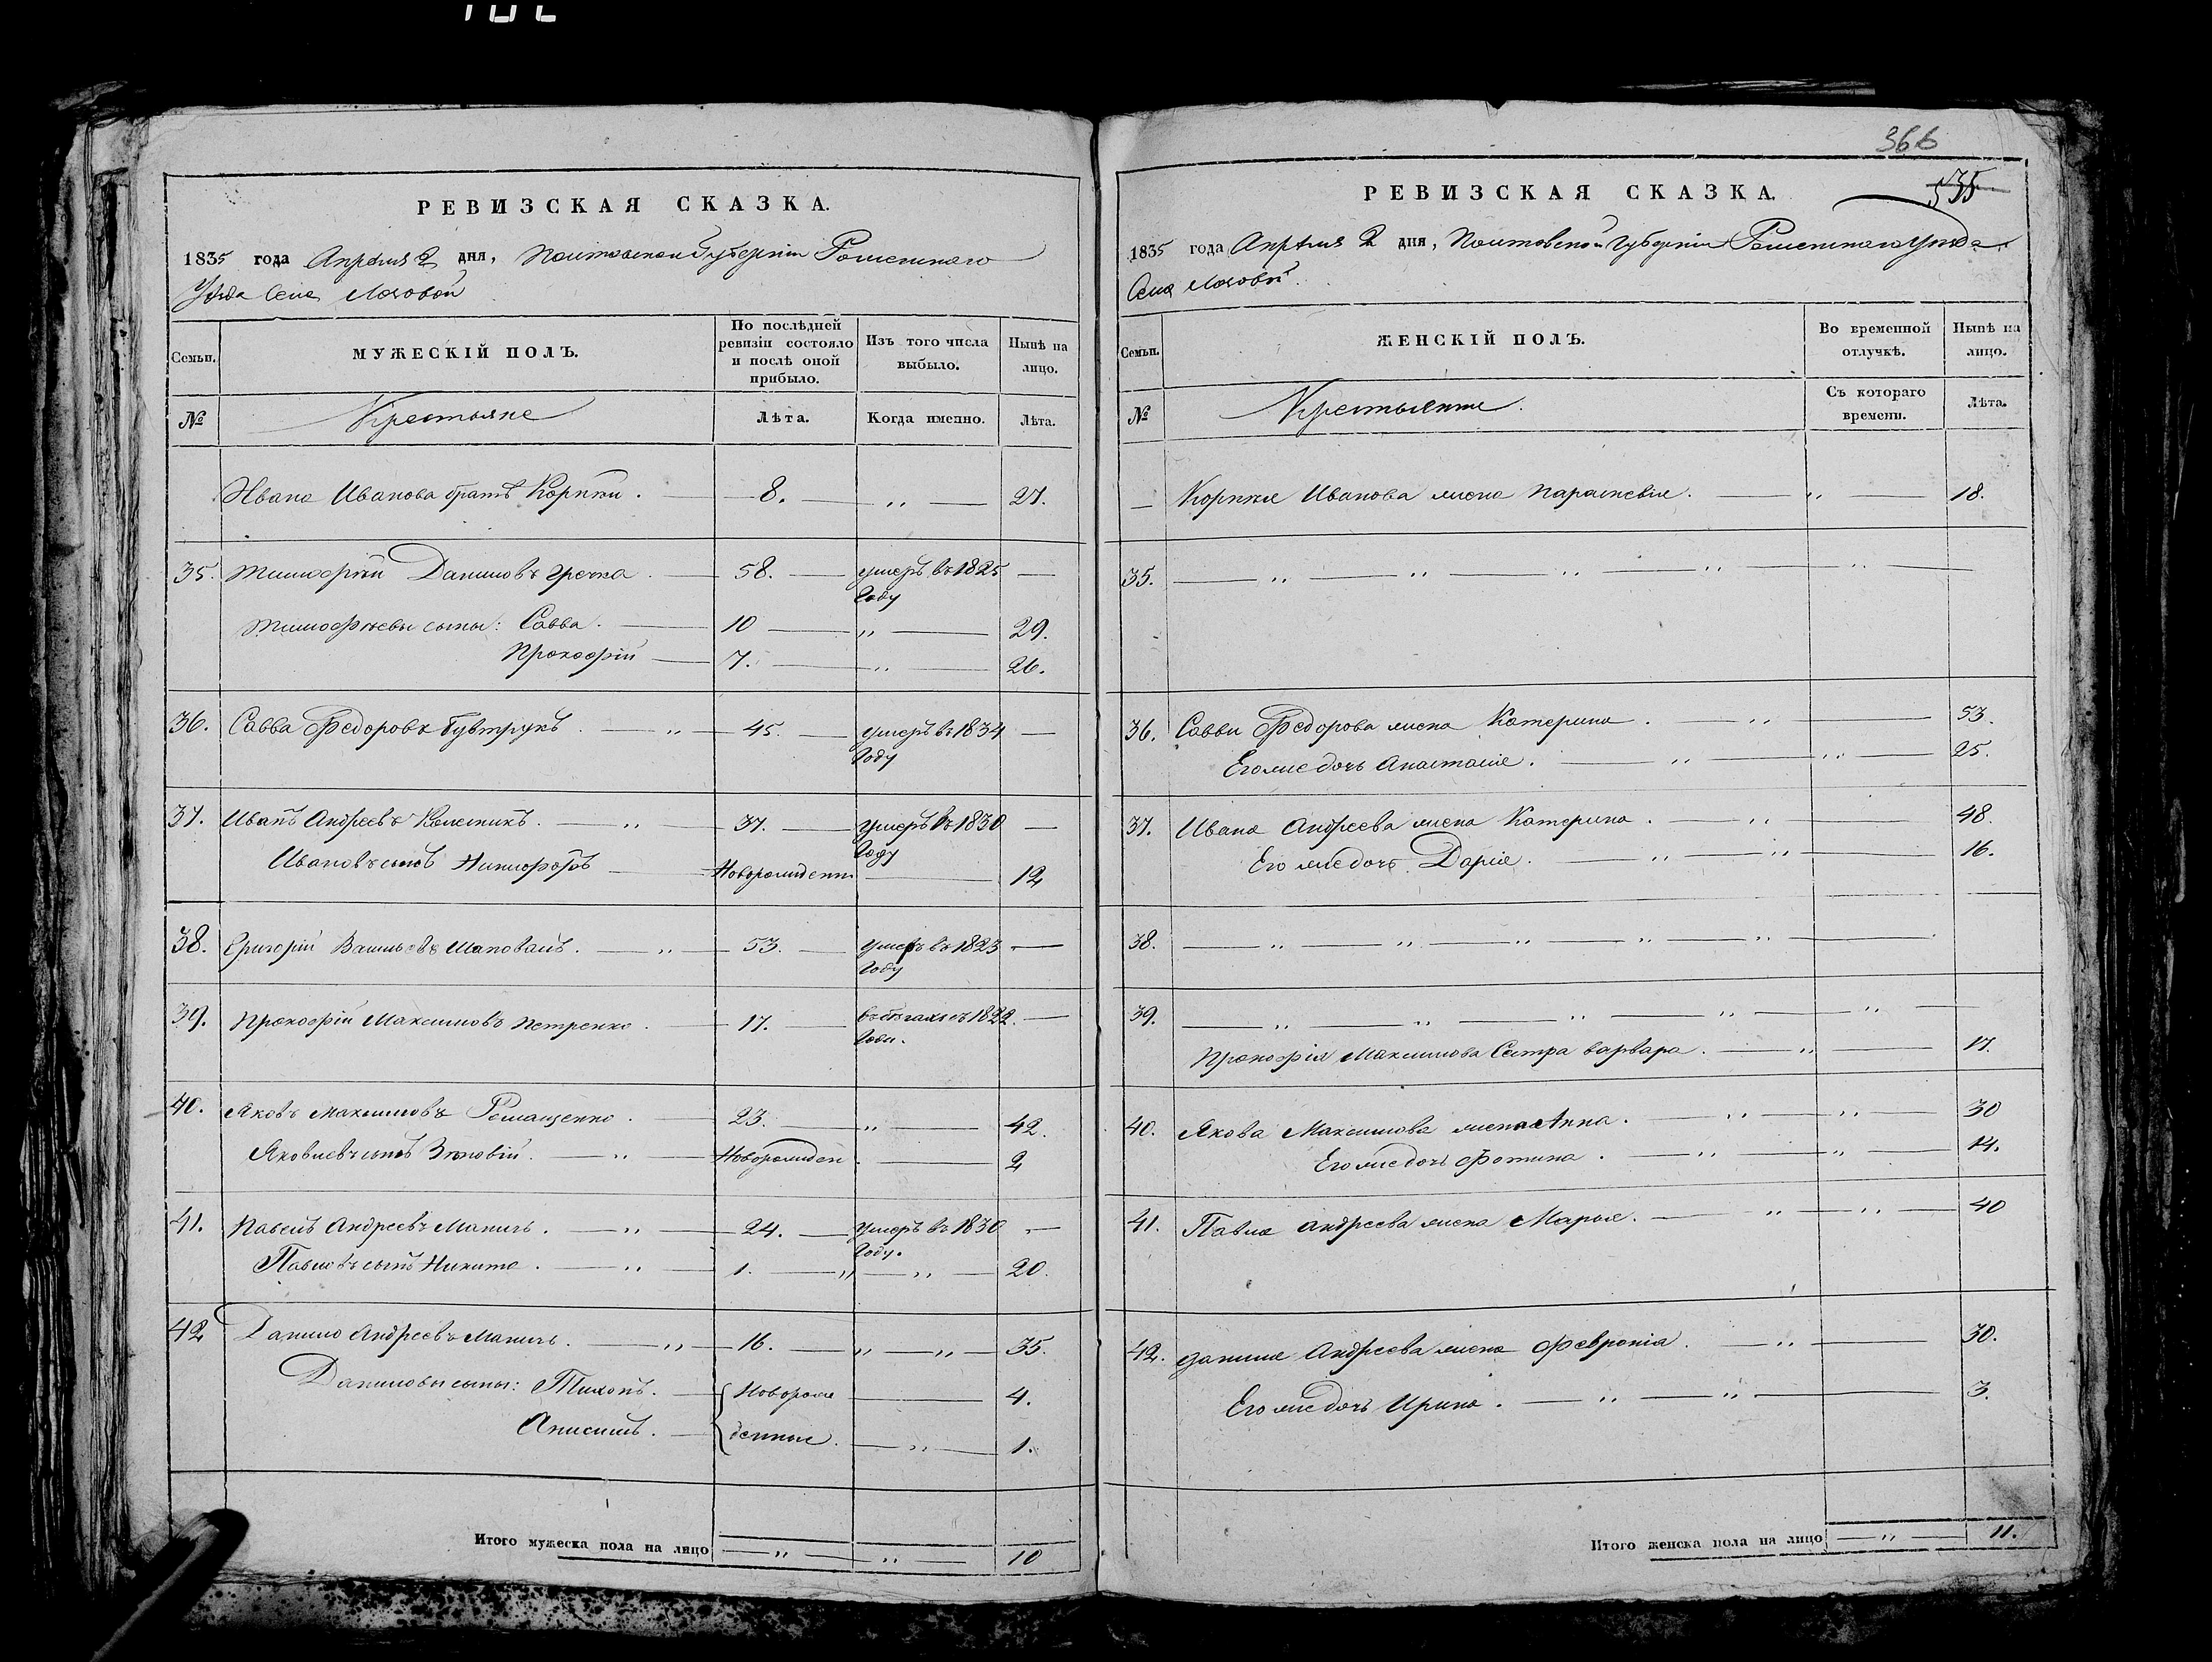 366
535
РЕВИЗСКАЯ СКАЗКА.
1835 года Апреля 2 дня, Полтавской Губерніи Роменскаго
Уезда Села Логовой
Семьи. МУЖЕСКІЙ ПОЛЪ. По послѣдней ревизіи состояло и послѣ оной прибыло. Изъ того числа выбыло. Нынѣ на лицо.
№ Крестьяне Лѣта. Когда именно. Лѣта.
Ивана Иванова братъ Корнѣй. 8. „ 27.
35. Тимофѣй Даниловъ Гречка 58. умеръ въ 1825 Году
Тимофѣевы сыны: Савва. 10 „ 29.
Прокофій 7. „ 26.
36. Савва Федоровъ 45. умеръ въ 1834 Году
37. Иванъ Андреевъ Колесникъ. 37. умеръ въ 1830 Году
Ивановъ сынъ Никифоръ Новорожденн 12
38. Григорій Васильевъ Шаповалъ. 53. умеръ въ 1823 Году
39. Прокофій Максимовъ Петренко. 17. въ бѣгахъ съ 1822. Года.
40. Яковъ Максимовъ Ромащенко. 23. „ 42.
Яковлевъ сынъ Зѣновій. Новорожден 2
41. Павелъ Андреевъ Маничь. 24. умеръ въ 1830 Году.
Павловъ сынъ Никита. 1. „ „ 20.
42 Данило Андреевъ Маничь. 16. „ „ 35.
Даниловы сыны: Тихонъ. Новорож 4.
Анисимъ. денные. „ 1.
Итого мужеска пола на лицо „ „ 10
РЕВИЗСКАЯ СКАЗКА.
1835 года Апреля 2 дня, Полтавской Губерніи Роменскаго Уезда
Села Логовой.
Семьи. ЖЕНСКІЙ ПОЛЪ. Во временной отлучкѣ. Нынѣ на лицо.
№ Крестьянки. Съ котораго времени. Лѣта.
Корнѣя Иванова жена Параскевія. „ 18.
35. „ „ „ „ „
36. Саввы Федорова жена Катерина. „ 53.
Его же дочь Анастасія. „ „ 25.
37. Ивана Андреева жена Катерина. „ 48.
Его же дочь Дарія. „ „ 16.
38. „ „ „ „ „
39. „ „ „ „ „
Прокофія Максимова Сестра варвара. „ 17.
40. Якова Максимова жена Анна. „ „ 30
Его же дочь Фотина. „ „ 14.
41. Павла Андреева жена Марья. „ „ 40
42. Данила Андреева жена Февронія. „ 30.
Его же дочь Ирина. „ „ 3.
Итого женска пола на лицо „ 11.